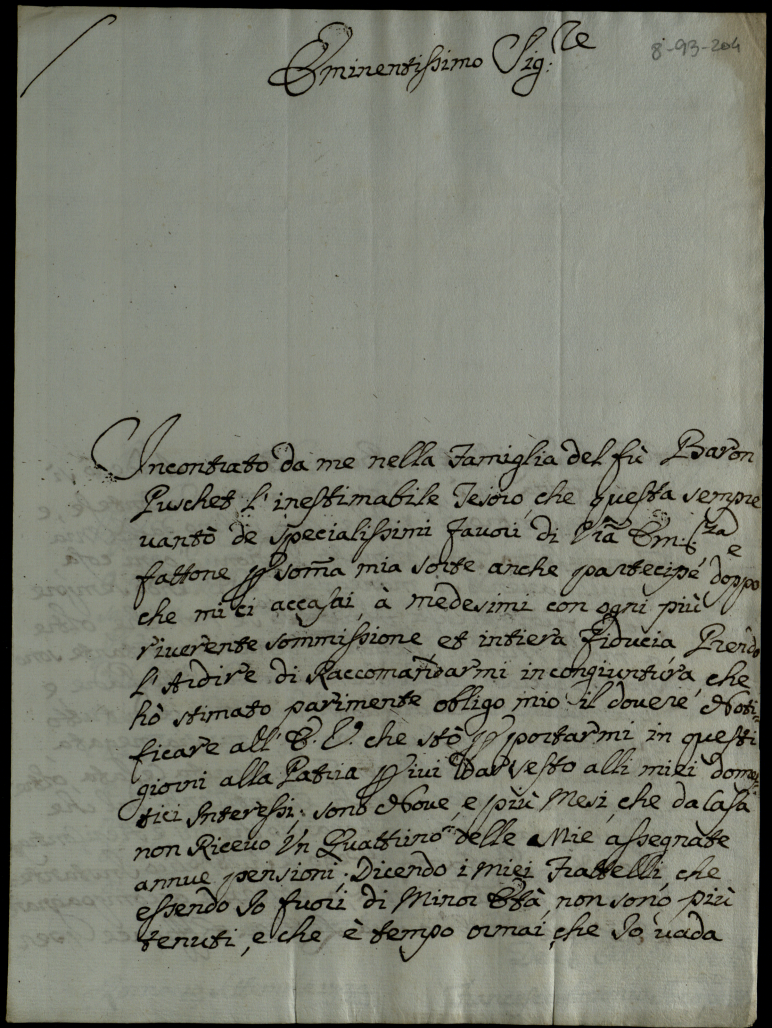 8-93-204
Eminentissimo Sig:re
Incontrato da me nella Famiglia del fù Baron
Puschet l'inestimabile Tesoro, che questa sempre
vantò de specialissimi favori di Vra Em:za e
fattone p somã mia sorte anche partecipe doppo
che mi ci accasai, à medesimi con ogni più
riverente sommissione, et intiera fiducia Prendo
l'Ardire di Raccomandarmi in congiuntura, che
hò stimato parimente obligo mio il dovere Noti-
ficare all'E. V. che stò p portarmi in questi
giorni alla Patria p ivi dar sesto alli miei domes-
tici Interessi; sono Nove, e più Mesi, che da Casa
non Ricevo Un Quattrino delle Mie assegnate
annue pensioni. Dicendo i miei Frattelli, che
essendo Io fuori di Minor Età, non sono più
tenuti, e che è tempo ormai, che Io vada